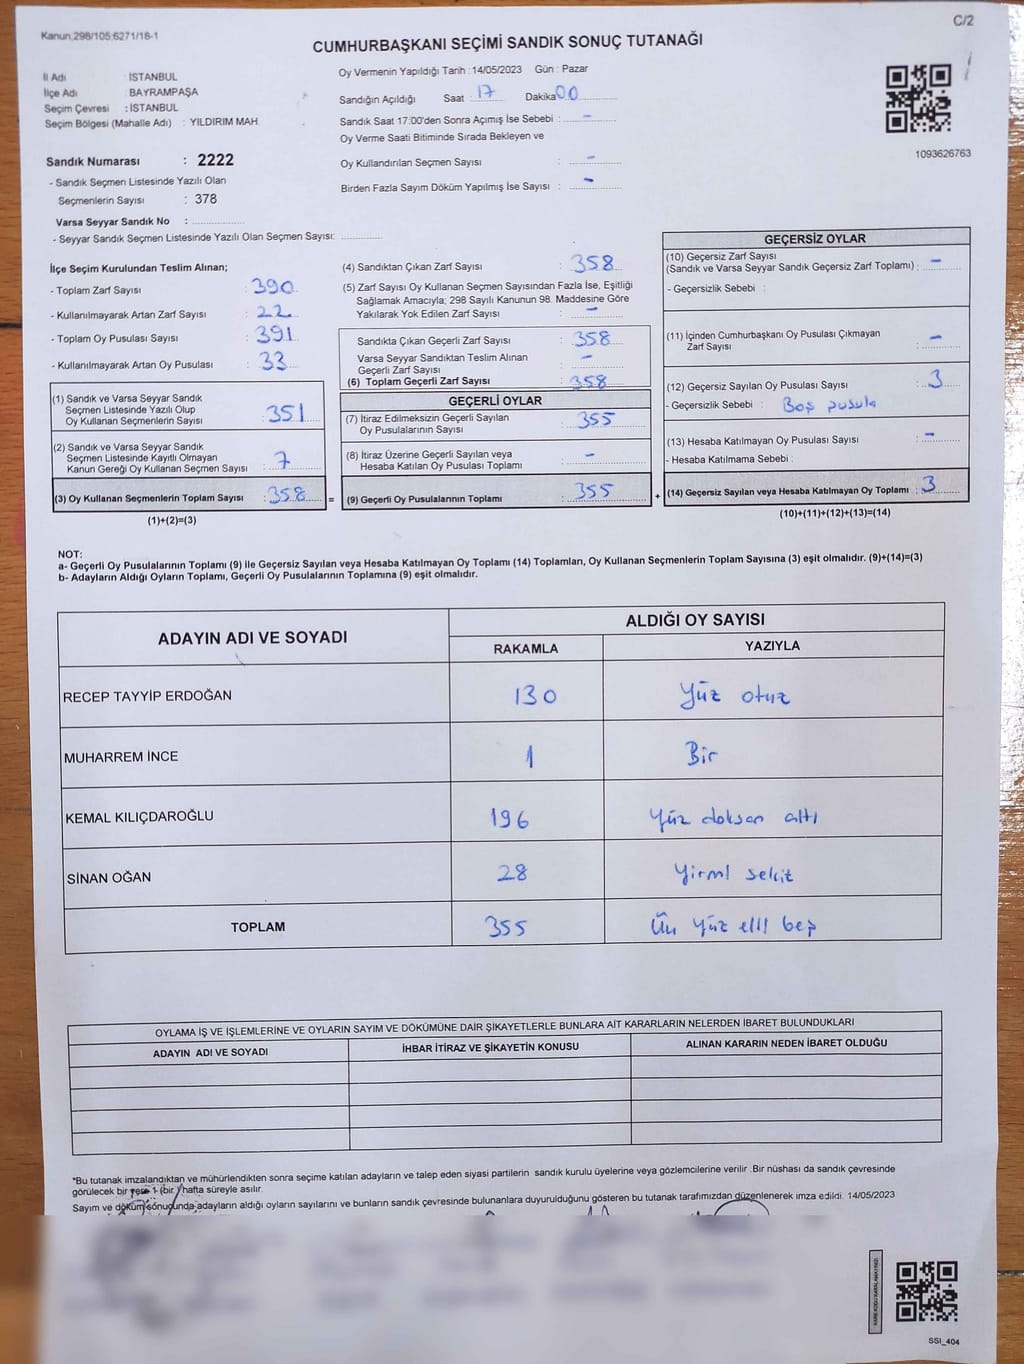 Kanun:298/105:6271/18-1
C/2
CUMHURBAŞKANI SEÇİMİ SANDIK SONUÇ TUTANAĞI
İl Adı : İSTANBUL
İlçe Adı : BAYRAMPAŞA
Seçim Çevresi : İSTANBUL
Seçim Bölgesi (Mahalle Adı) : YILDIRIM MAH.
Sandık Numarası : 2222
- Sandık Seçmen Listesinde Yazılı Olan
Seçmenlerin Sayısı : 378
Varsa Seyyar Sandık No :
- Seyyar Sandık Seçmen Listesinde Yazılı Olan Seçmen Sayısı:
Oy Vermenin Yapıldığı Tarih : 14/05/2023 Gün : Pazar
Sandığın Açıldığı Saat 17 Dakika 00
Sandık Saat 17:00'den Sonra Açımış İse Sebebi : -
Oy Verme Saati Bitiminde Sırada Bekleyen ve
Oy Kullandırılan Seçmen Sayısı -
Birden Fazla Sayım Döküm Yapılmış İse Sayısı : -
1093626763
İlçe Seçim Kurulundan Teslim Alınan;
- Toplam Zarf Sayısı : 390
- Kullanılmayarak Artan Zarf Sayısı : 22
- Toplam Oy Pusulası Sayısı : 391
- Kullanılmayarak Artan Oy Pusulası : 33
(1) Sandık ve Varsa Seyyar Sandık
Seçmen Listesinde Yazılı Olup
Oy Kullanan Seçmenlerin Sayısı : 351
(2) Sandık ve Varsa Seyyar Sandık
Seçmen Listesinde Kayıtlı Olmayan
Kanun Gereği Oy Kullanan Seçmen Sayısı : 7
(3) Oy Kullanan Seçmenlerin Toplam Sayısı : 358
=
(1)+(2)=(3)
(4) Sandıktan Çıkan Zarf Sayısı : 358
(5) Zarf Sayısı Oy Kullanan Seçmen Sayısından Fazla İse, Eşitliği
Sağlamak Amacıyla; 298 Sayılı Kanunun 98. Maddesine Göre
Yakılarak Yok Edilen Zarf Sayısı : -
Sandıkta Çıkan Geçerli Zarf Sayısı : 358
Varsa Seyyar Sandıktan Teslim Alınan
Geçerli Zarf Sayısı : -
(6) Toplam Geçerli Zarf Sayısı : 358
GEÇERLİ OYLAR
(7) İtiraz Edilmeksizin Geçerli Sayılan
Oy Pusulalarının Sayısı : 355
(8) İtiraz Üzerine Geçerli Sayılan veya
Hesaba Katılan Oy Pusulası Toplamı : -
(9) Geçerli Oy Pusulalarının Toplamı : 355
+
GEÇERSİZ OYLAR
(10) Geçersiz Zarf Sayısı
(Sandık ve Varsa Seyyar Sandık Geçersiz Zarf Toplamı) : -
- Geçersizlik Sebebi :
(11) İçinden Cumhurbaşkanı Oy Pusulası Çıkmayan
Zarf Sayısı : -
(12) Geçersiz Sayılan Oy Pusulası Sayısı : 3
- Geçersizlik Sebebi : Boş pusula
(13) Hesaba Katılmayan Oy Pusulası Sayısı : -
- Hesaba Katılmama Sebebi :
(14) Geçersiz Sayılan veya Hesaba Katılmayan Oy Toplamı : 3
(10)+(11)+(12)+(13)=(14)
NOT:
a- Geçerli Oy Pusulalarının Toplamı (9) ile Geçersiz Sayılan veya Hesaba Katılmayan Oy Toplamı (14) Toplamları, Oy Kullanan Seçmenlerin Toplam Sayısına (3) eşit olmalıdır. (9)+(14)=(3)
b- Adayların Aldığı Oyların Toplamı, Geçerli Oy Pusulalarının Toplamına (9) eşit olmalıdır.
ADAYIN ADI VE SOYADI ALDIĞI OY SAYISI
RAKAMLA YAZIYLA
RECEP TAYYİP ERDOĞAN 130 Yüz otuz
MUHARREM İNCE 1 Bir
KEMAL KILIÇDAROĞLU 196 Yüz doksan altı
SİNAN OĞAN 28 Yirmi sekiz
TOPLAM 355 Üç yüz elli beş
OYLAMA İŞ VE İŞLEMLERİNE VE OYLARIN SAYIM VE DÖKÜMÜNE DAİR ŞİKAYETLERLE BUNLARA AİT KARARLARIN NELERDEN İBARET BULUNDUKLARI
ADAYIN ADI VE SOYADI İHBAR İTİRAZ VE ŞİKAYETİN KONUSU ALINAN KARARIN NEDEN İBARET OLDUĞU
*Bu tutanak imzalandıktan ve mühürlendikten sonra seçime katılan adayların ve talep eden siyasi partilerin sandık kurulu üyelerine veya gözlemcilerine verilir .Bir nüshası da sandık çevresinde
görülecek bir yere 1 (bir) hafta süreyle asılır.
Sayım ve döküm sonucunda adayların aldığı oyların sayılarını ve bunların sandık çevresinde bulunanlara duyurulduğunu gösteren bu tutanak tarafımızdan düzenlenerek imza edildi. 14/05/2023
SSI_404